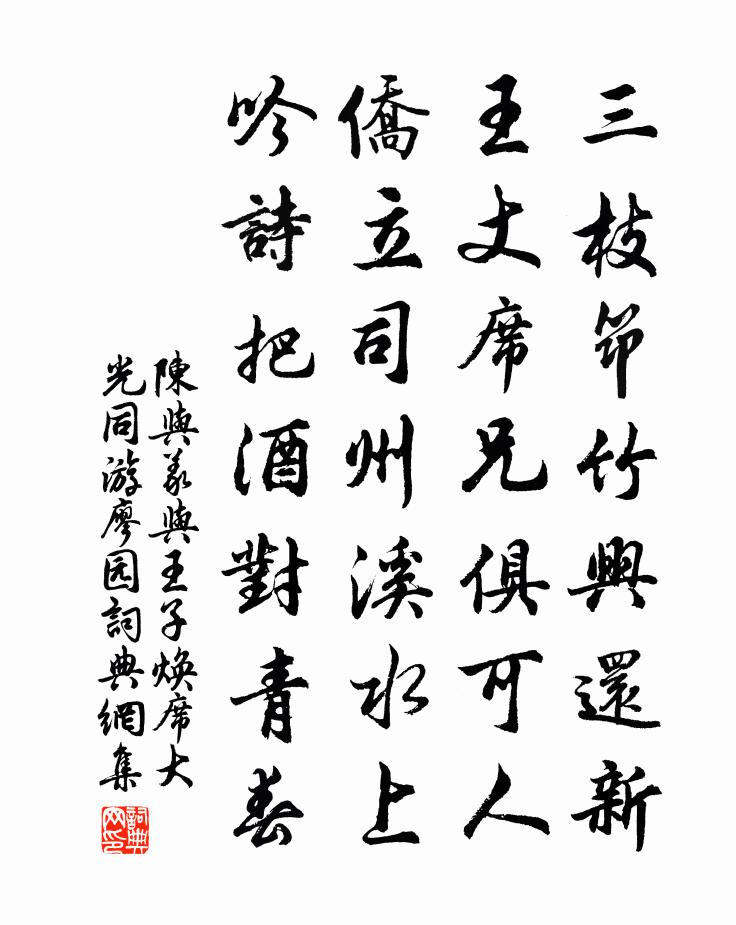 三枝筇竹興還新
王丈席兄俱可人
僑立司州溪水上
吟詩把酒對青春
陳與義與王子焕席大
光同游廖园詞典網集
詞典
网印